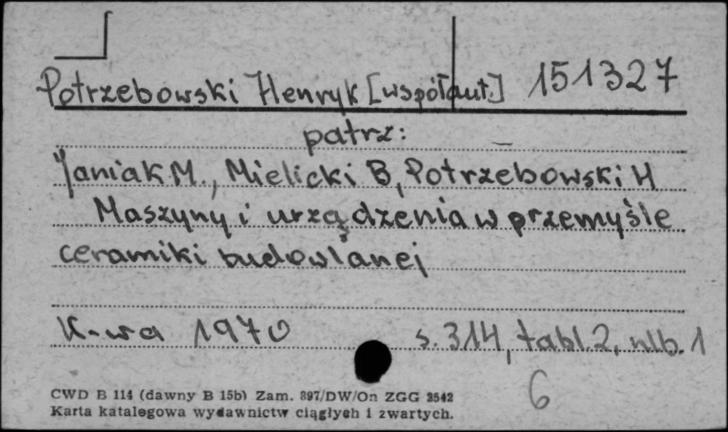 Potrzebowski Henryk [współaut] 151327
patrz:
Janiak M., Mielicki B, Potrzebowski H
Maszyny i urządzenia w przemyśle
ceramiki budowlanej
K-wa 1970 s. 314, tabl. 2, nlb. 1
6
CWD B 114 (dawny B 15b) Zam. 897/DW/On ZGG 3542
Karta katalogowa wydawnictw ciągłych i zwartych.